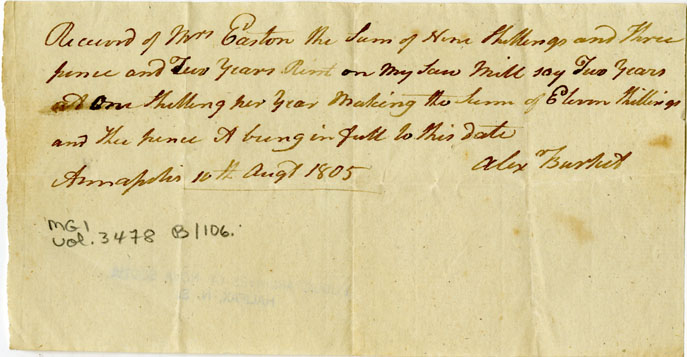 Received of Mrs Easton the Sum of Nine Shillings and three
pence and Two Years Rent on my Saw Mill say Two Years
at One Shilling per Year Making the Sum of Eleven Shillings
and thee pence A being in full to this date
Annapolis 10th Augt 1805 Alexr Burket
MG1
vol. 3478 B/106.
HALIFAX, N. S.